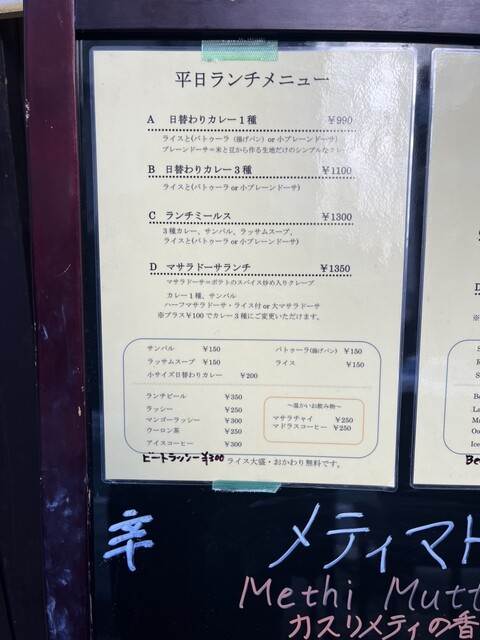 平日ランチメニュー
A 日替わりカレー1種 ¥990
ライスと(バトゥーラ(揚げパン) or 小プレーンドーサ)
プレーンドーサ=米と豆から作る生地だけのシンプルなクレー
B 日替わりカレー3種 ¥1100
ライスと(バトゥーラ or 小プレーンドーサ)
C ランチミールス ¥1300
3種カレー、サンバル、ラッサムスープ、
ライスと(バトゥーラ or 小プレーンドーサ)
D マサラドーサランチ ¥1350
マサラドーサ=ポテトのスパイス炒め入りクレープ
カレー1種、サンバル
ハーフマサラドーサ・ライス付 or 大マサラドーサ
※プラス¥100でカレー3種にご変更いただけます。
サンバル ¥150 バトゥーラ(揚げパン) ¥150
ラッサムスープ ¥150 ライス ¥150
小サイズ日替わりカレー ¥200
ランチビール ¥350
ラッシー ¥250
マンゴーラッシー ¥300
ウーロン茶 ¥250
アイスコーヒー ¥300
~温かいお飲み物~
マサラチャイ ¥250
マドラスコーヒー ¥250
ビートラッシー ¥300
ライス大盛・おかわり無料です。
辛 メティマト
Methi Mutt
カスリメティの香